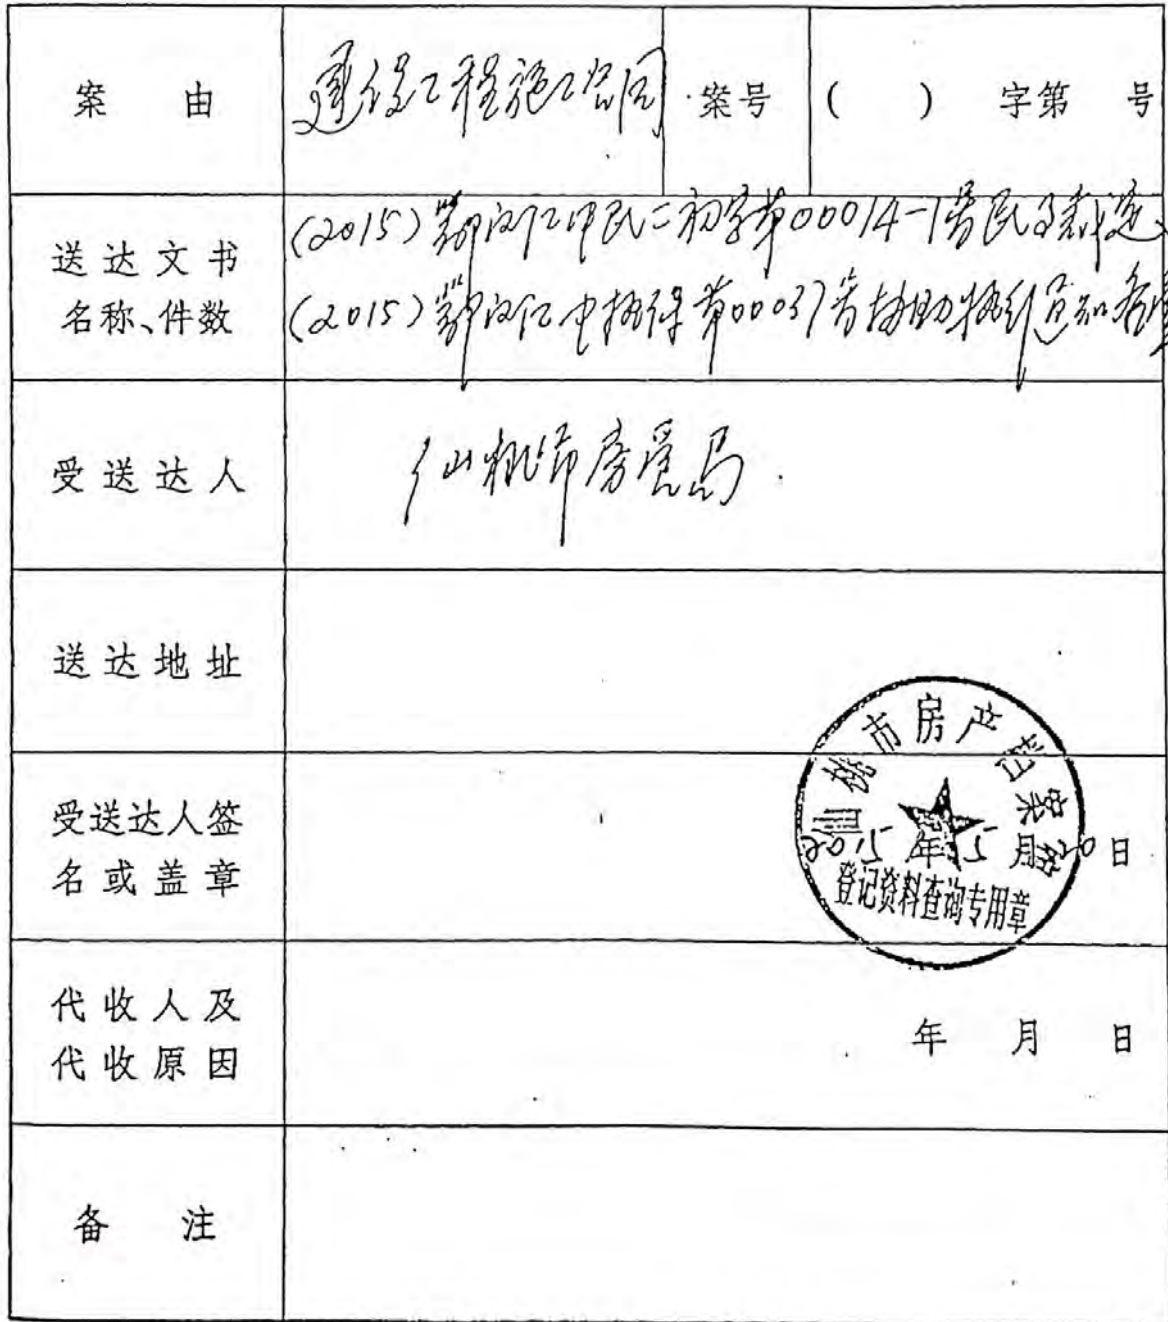 案 由 建设工程施工合同 案号 ( ) 字第 号
送达文书名称、件数
(2015)鄂汉江中民二初字第00014-1号民事裁定、
(2015)鄂汉江中执保第00037号协助执行通知各壹
受送达人 仙桃市房管局
送达地址
受送达人签名或盖章
仙桃市房产档案馆
2015年5月20日
登记资料查询专用章
代收人及代收原因 年 月 日
备 注